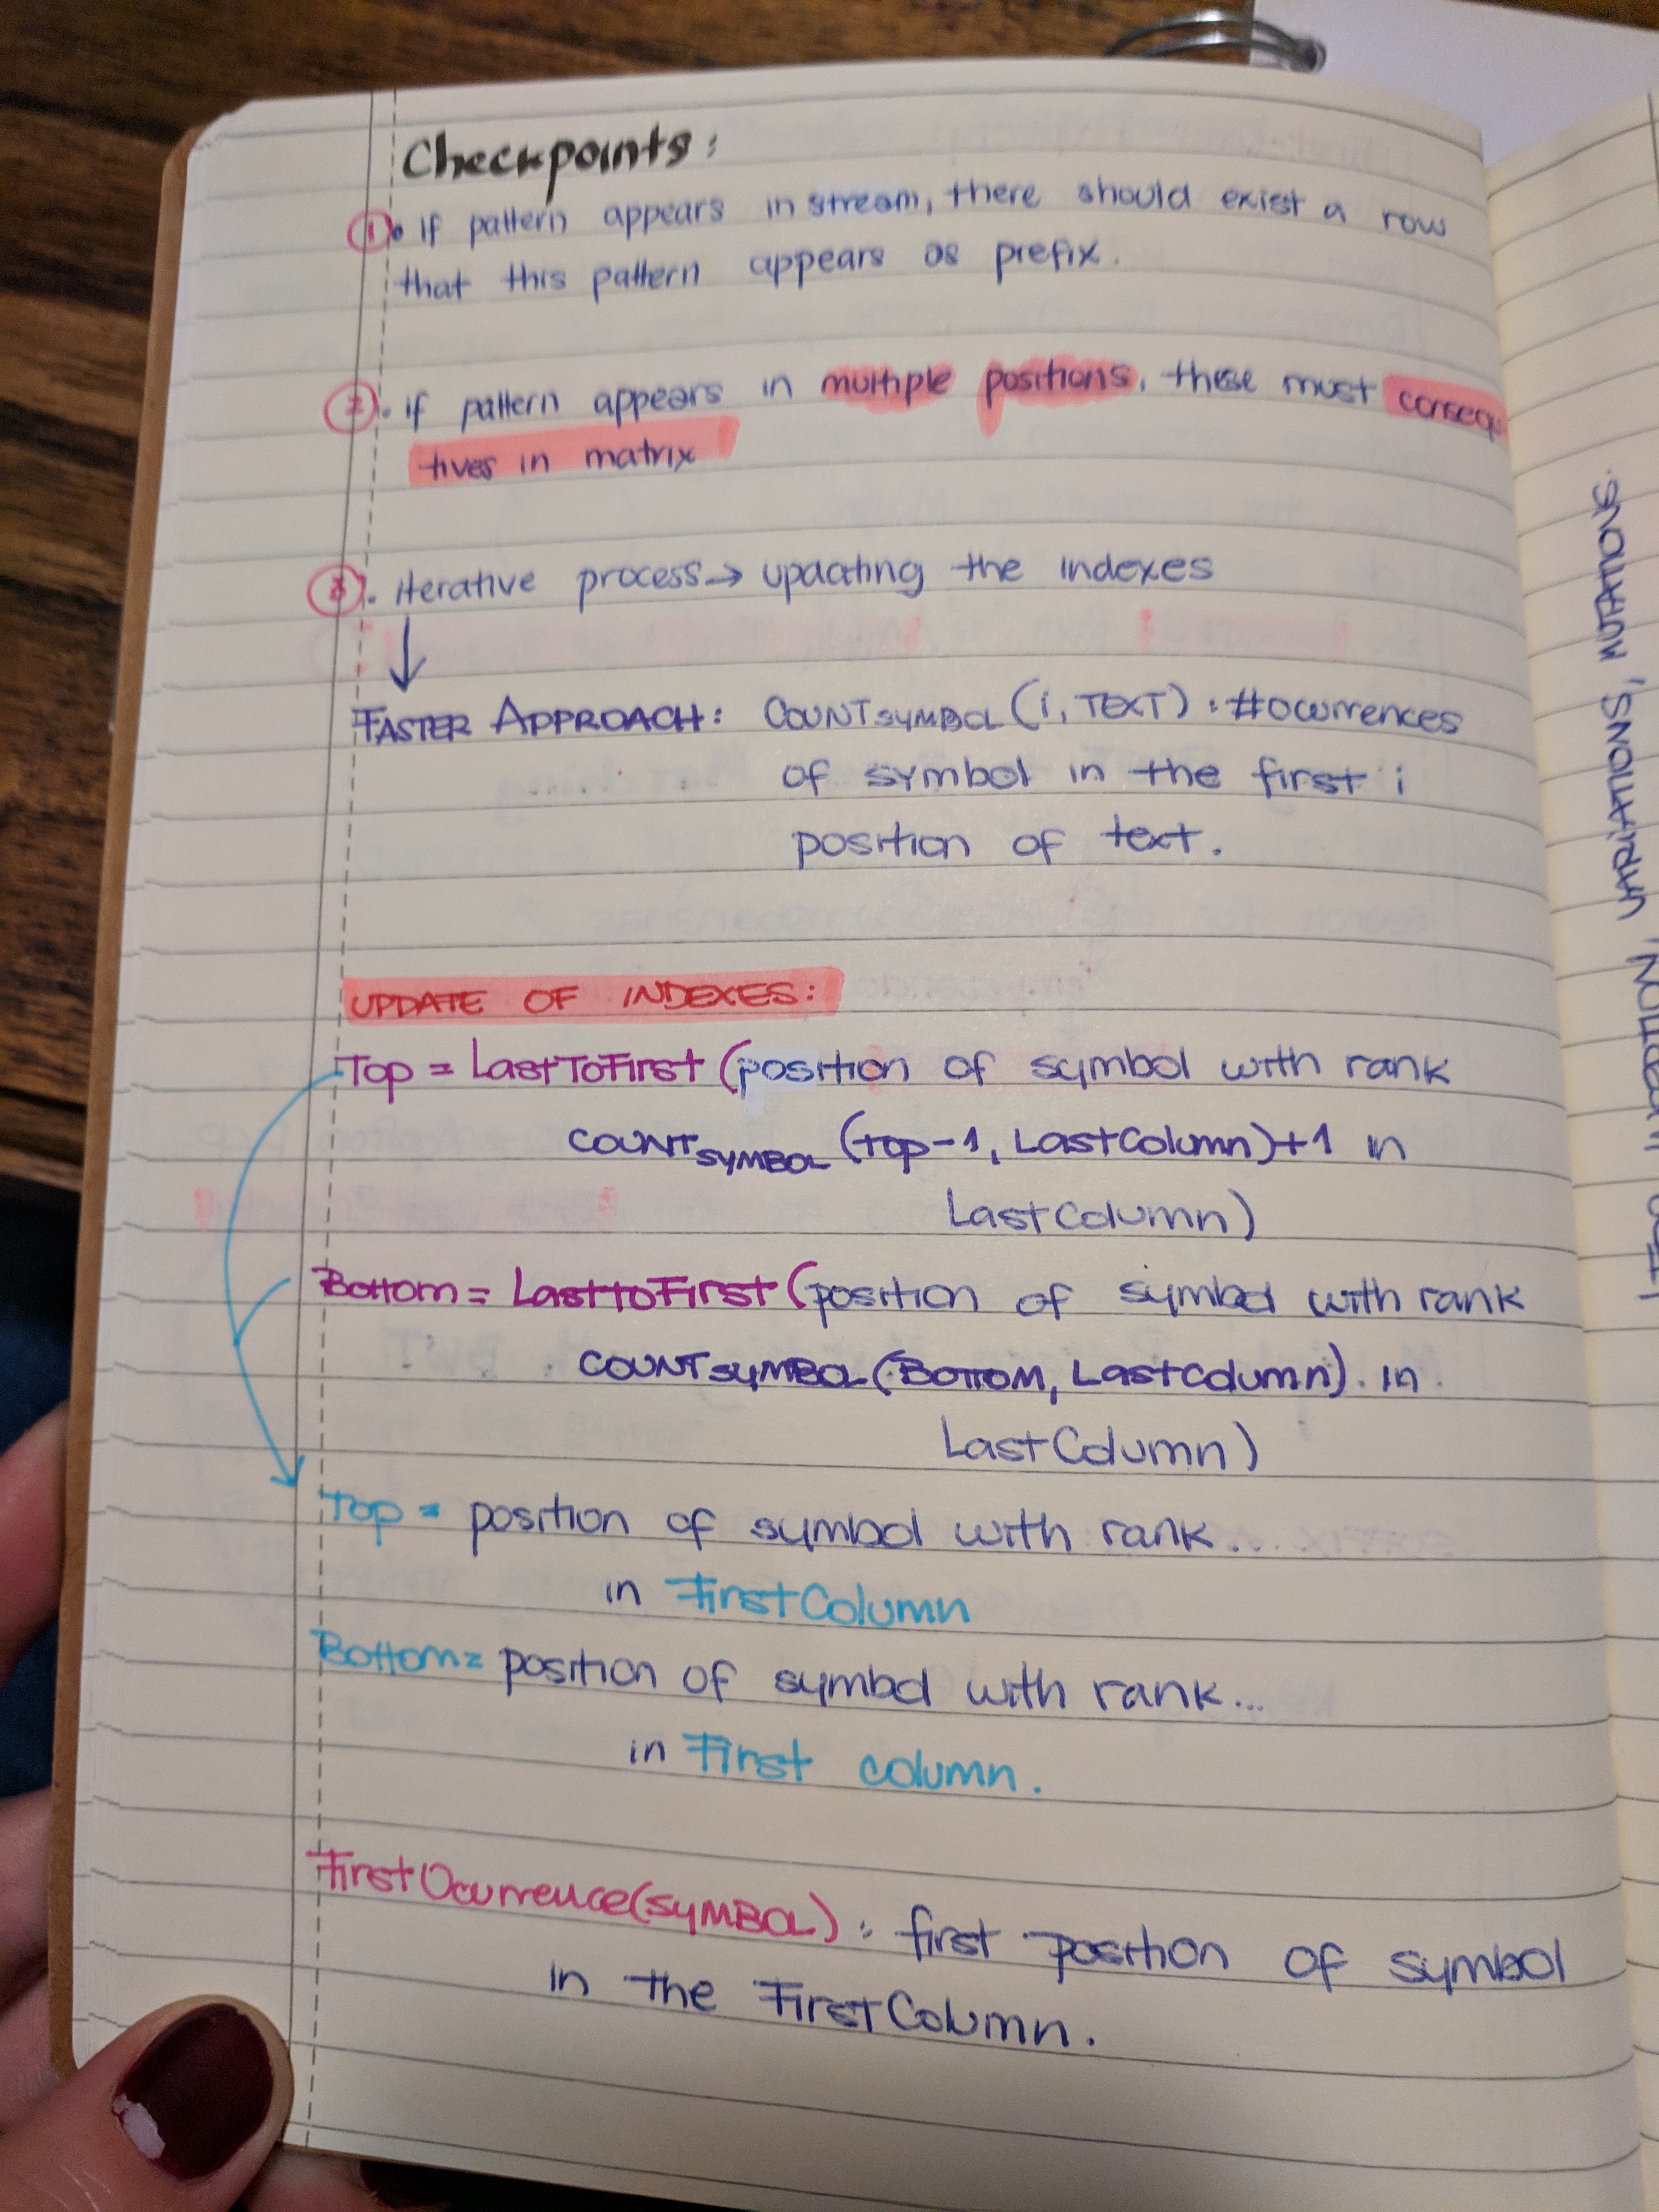 Checkpoints:
1. If pattern appears in stream, there should exist a row
that this pattern appears as prefix.
2. if pattern appears in multiple positions, these must consequ
tives in matrix
3. iterative process → updating the indexes
FASTER APPROACH: COUNTSYMBOL (i, TEXT) : #ocurrences
of symbol in the first i
position of text.
UPDATE OF INDEXES:
Top = LastToFirst (position of symbol with rank
COUNTSYMBOL (top-1, LastColumn)+1 in
LastColumn)
Bottom = LasttoFirst (position of symbol with rank
COUNTSYMBOL (BOTTOM, LastColumn). in
LastColumn)
Top = position of symbol with rank...
in FirstColumn
Bottom = position of symbol with rank...
in First column.
FirstOcurrence(SYMBOL) : first position of symbol
in the FirstColumn.
VARIATIONS, MUTATIONS.